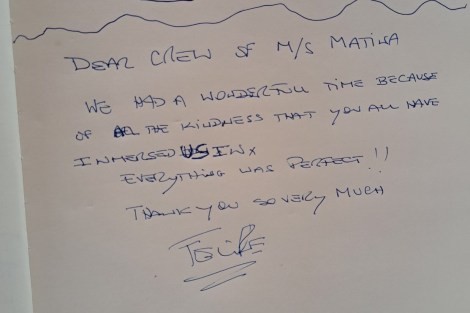 DEAR CREW OF M/S MATINA
WE HAD A WONDERFULL TIME BECAUSE
OF ALL THE KINDNESS THAT YOU ALL HAVE
INMERSED US IN x
EVERYTHING WAS PERFECT!!
THANK YOU SO VERY MUCH
FELIPE